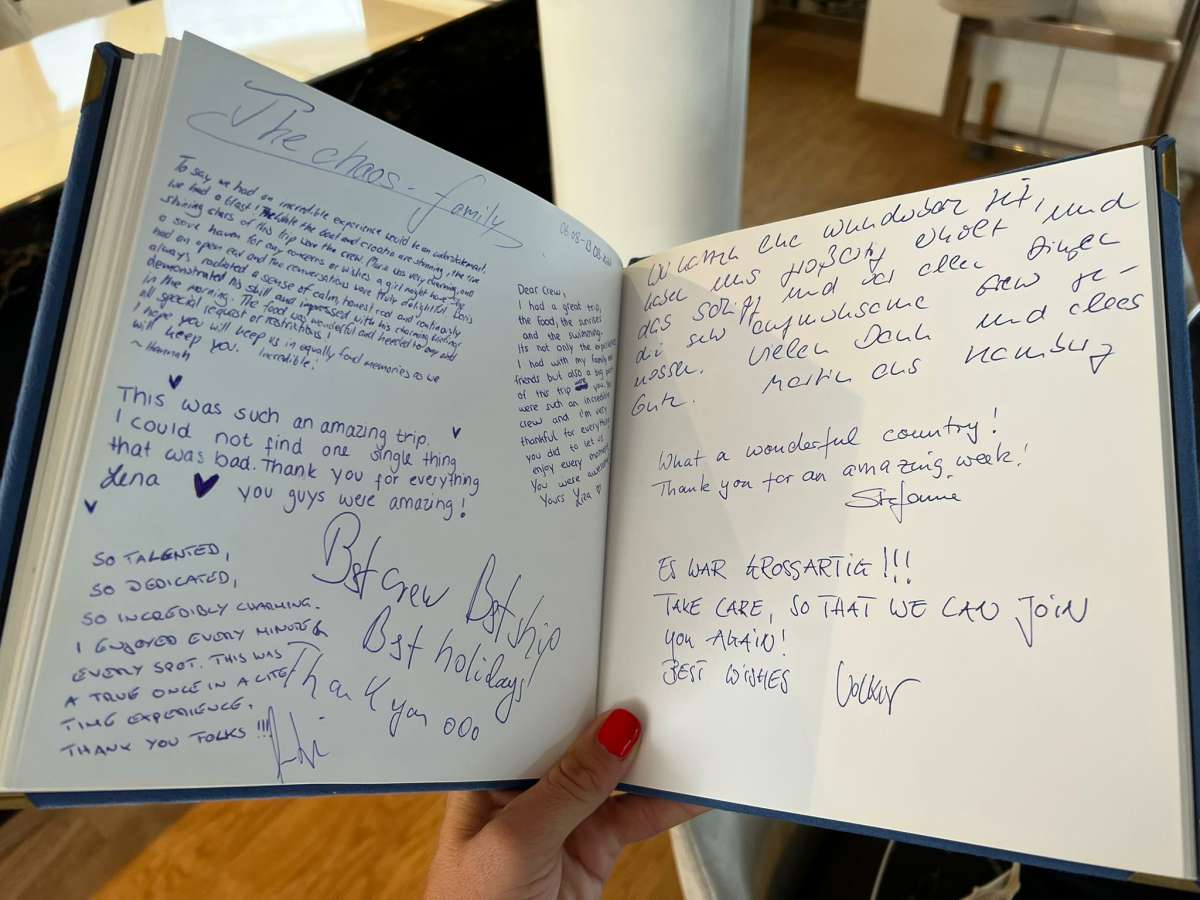 The chaos-family
06.08-13.08.
To say we had an incredible experience would be an understatement.
we had a blast! While the boat and croatia are stunning, the true
shining stars of this trip were the crew. Maria was very charming and
a save haven for any concerns or wishes a girl might have. She
had an open ear and the conversations were truly delightful. Boris
always radiated a sense of calm, honest cool and continously
demonstrated his skill and impressed with his charming
in the morning. The food was wonderful and heeded to any and
all special request or restrictions!
I hope you will keep us in equally fond memories as we
will keep you. Incredible!
~Hannah
This was such an amazing trip.
I could not find one single thing
that was bad. Thank you for everything
Lena you guys were amazing!
Dear Crew,
I had a great trip,
the food, the sunrises
and the swimming.
Its not only the experience
I had with my family and
friends but also a big part
of this trip was you. You
were such an incredible
crew and I'm very
thankful for everything
you did to let us
enjoy every moment.
You were awesome
Yours Liza
SO TALENTED,
SO DEDICATED,
SO INCREDIBLY CHARMING.
I ENJOYED EVERY MINUTE &
EVERY SPOT. THIS WAS
A TRUE ONCE IN A LIFE
TIME EXPERIENCE.
THANK YOU FOLKS!!!
Bst crew Bst ship
Bst holidays
Thank you ooo
Wir hatten eine wunderbare Zeit,
haben uns großartig erholt und
das Schiff und vor allen Dingen
die sehr aufmerksame Crew ge-
nossen. Vielen Dank und alles
Gute. Martin aus Hamburg
What a wonderful country!
Thank you for an amazing week!
Stefanie
ES WAR GROSSARTIG!!!
TAKE CARE, SO THAT WE CAN JOIN
YOU AGAIN!
BEST WISHES Volker